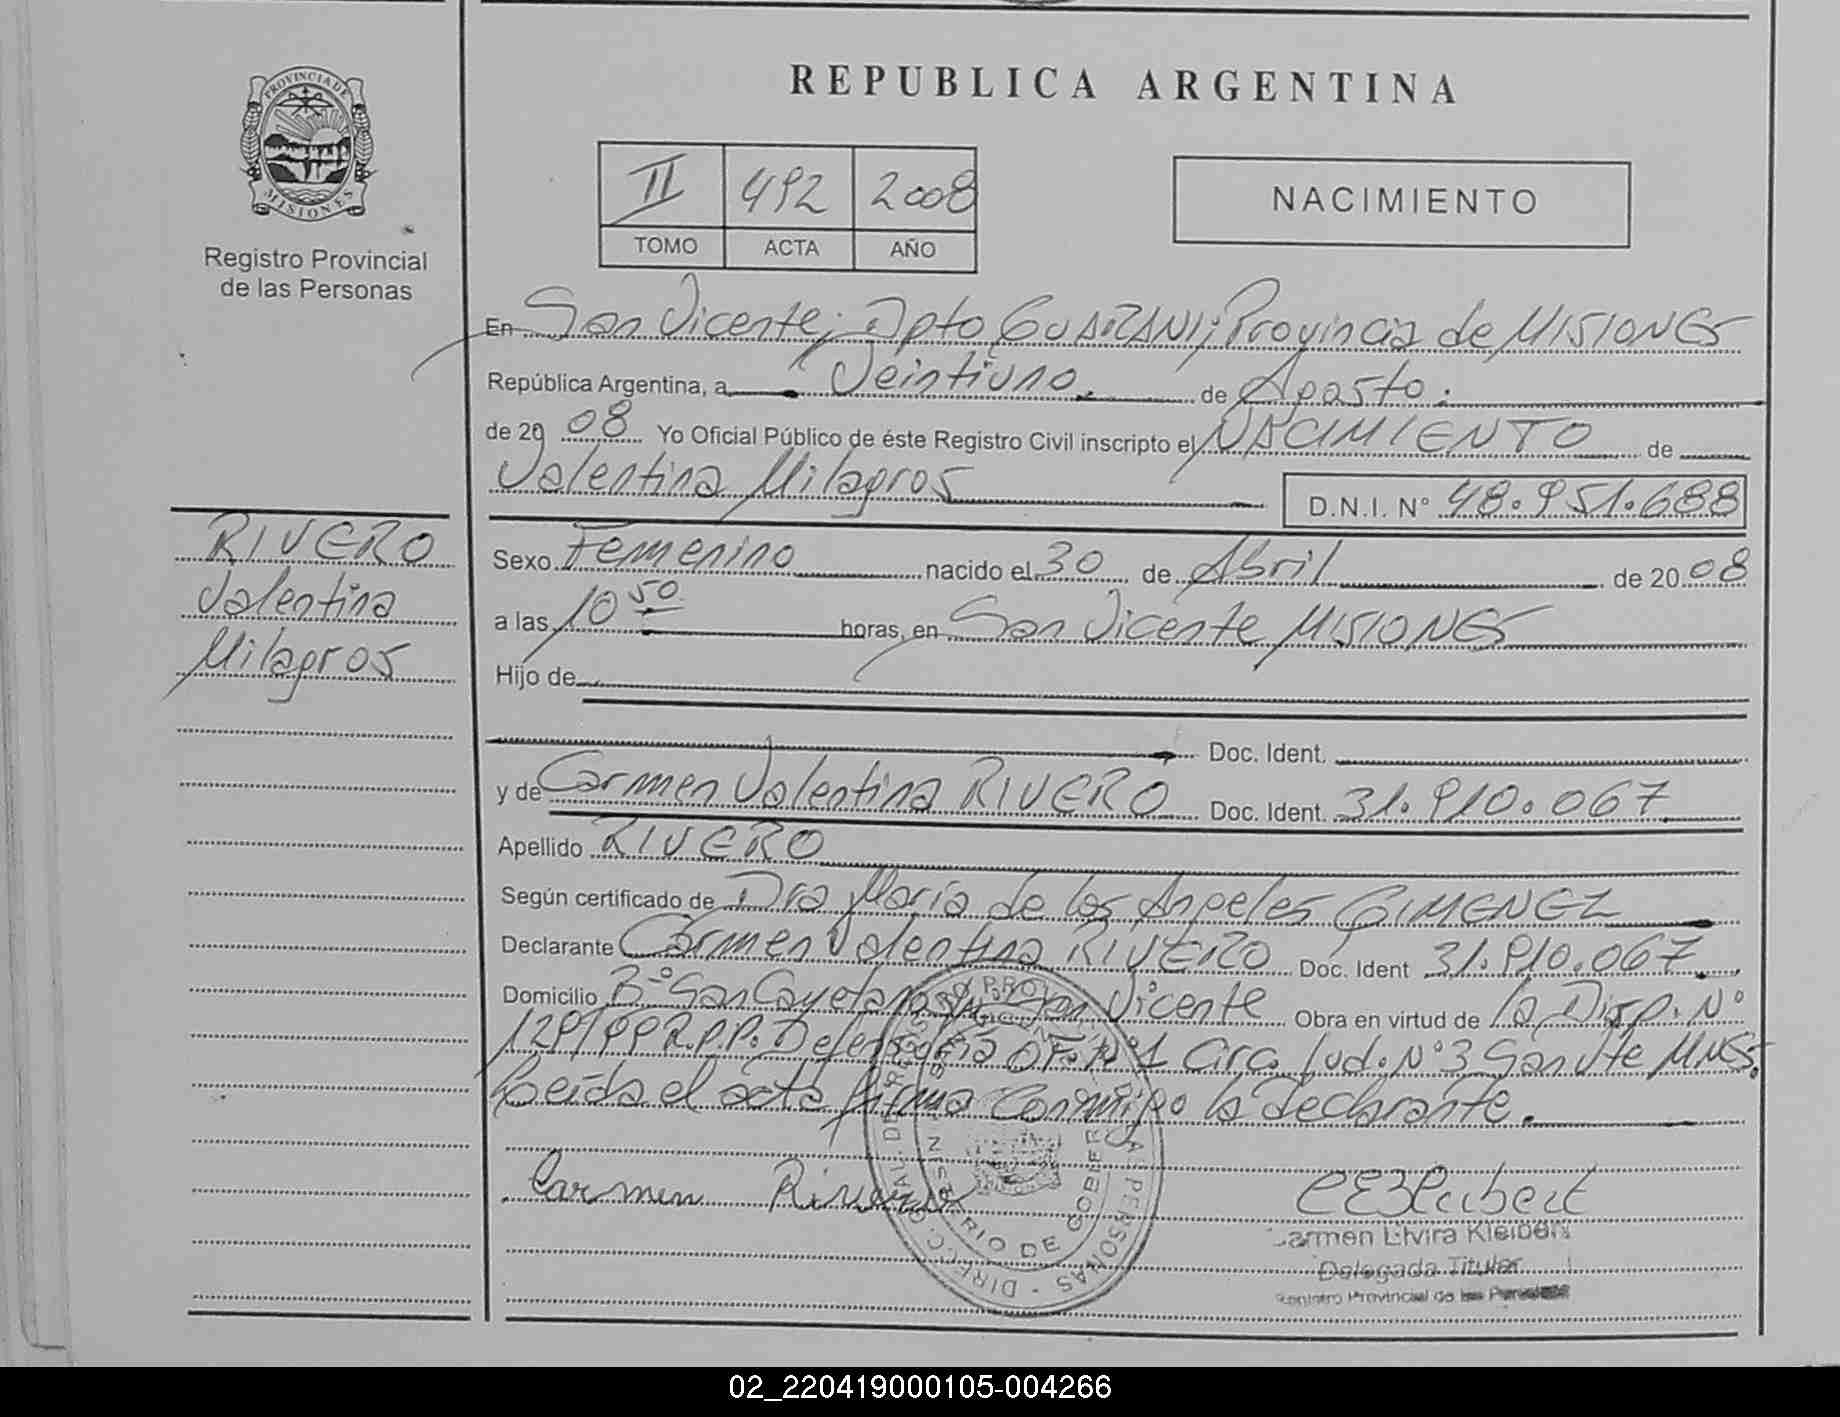 PROVINCIA DE
MISIONES
Registro Provincial
de las Personas
REPUBLICA ARGENTINA
II 492 2008
TOMO ACTA AÑO
NACIMIENTO
En San Vicente; Dpto GUARANI; Provincia de MISIONES
República Argentina, a Veintiuno de Agosto.
de 20 08 Yo Oficial Público de éste Registro Civil inscripto el NACIMIENTO de
Valentina Milagros D.N.I. N° 48.951.688
RIVERO
Valentina
Milagros
Sexo Femenino nacido el 30 de Abril de 20 08
a las 10 50 horas, en San Vicente MISIONES
Hijo de
Doc. Ident.
y de Carmen Valentina RIVERO Doc. Ident. 31.910.067
Apellido RIVERO
Según certificado de Dra María de los Angeles GIMENEZ
Declarante Carmen Valentina RIVERO Doc. Ident 31.910.067
Domicilio B° San Cayetano San Vicente Obra en virtud de la Disp. N°
129/99 R.P.P. Defensoría OF. N°1 Circ. Jud. N°3 San Vte MNES.
Leída el acta firma conmigo la declarante.
Carmen Rivero
Carmen Elvira Kleibert
Delegada Titular
Registro Provincial de las Personas
02_220419000105-004266